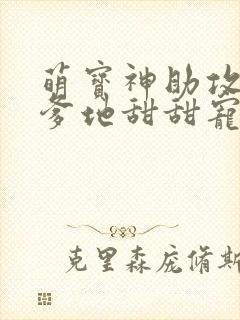 萌寶神助攻
爹地甜甜寵
克里森庞脩斯